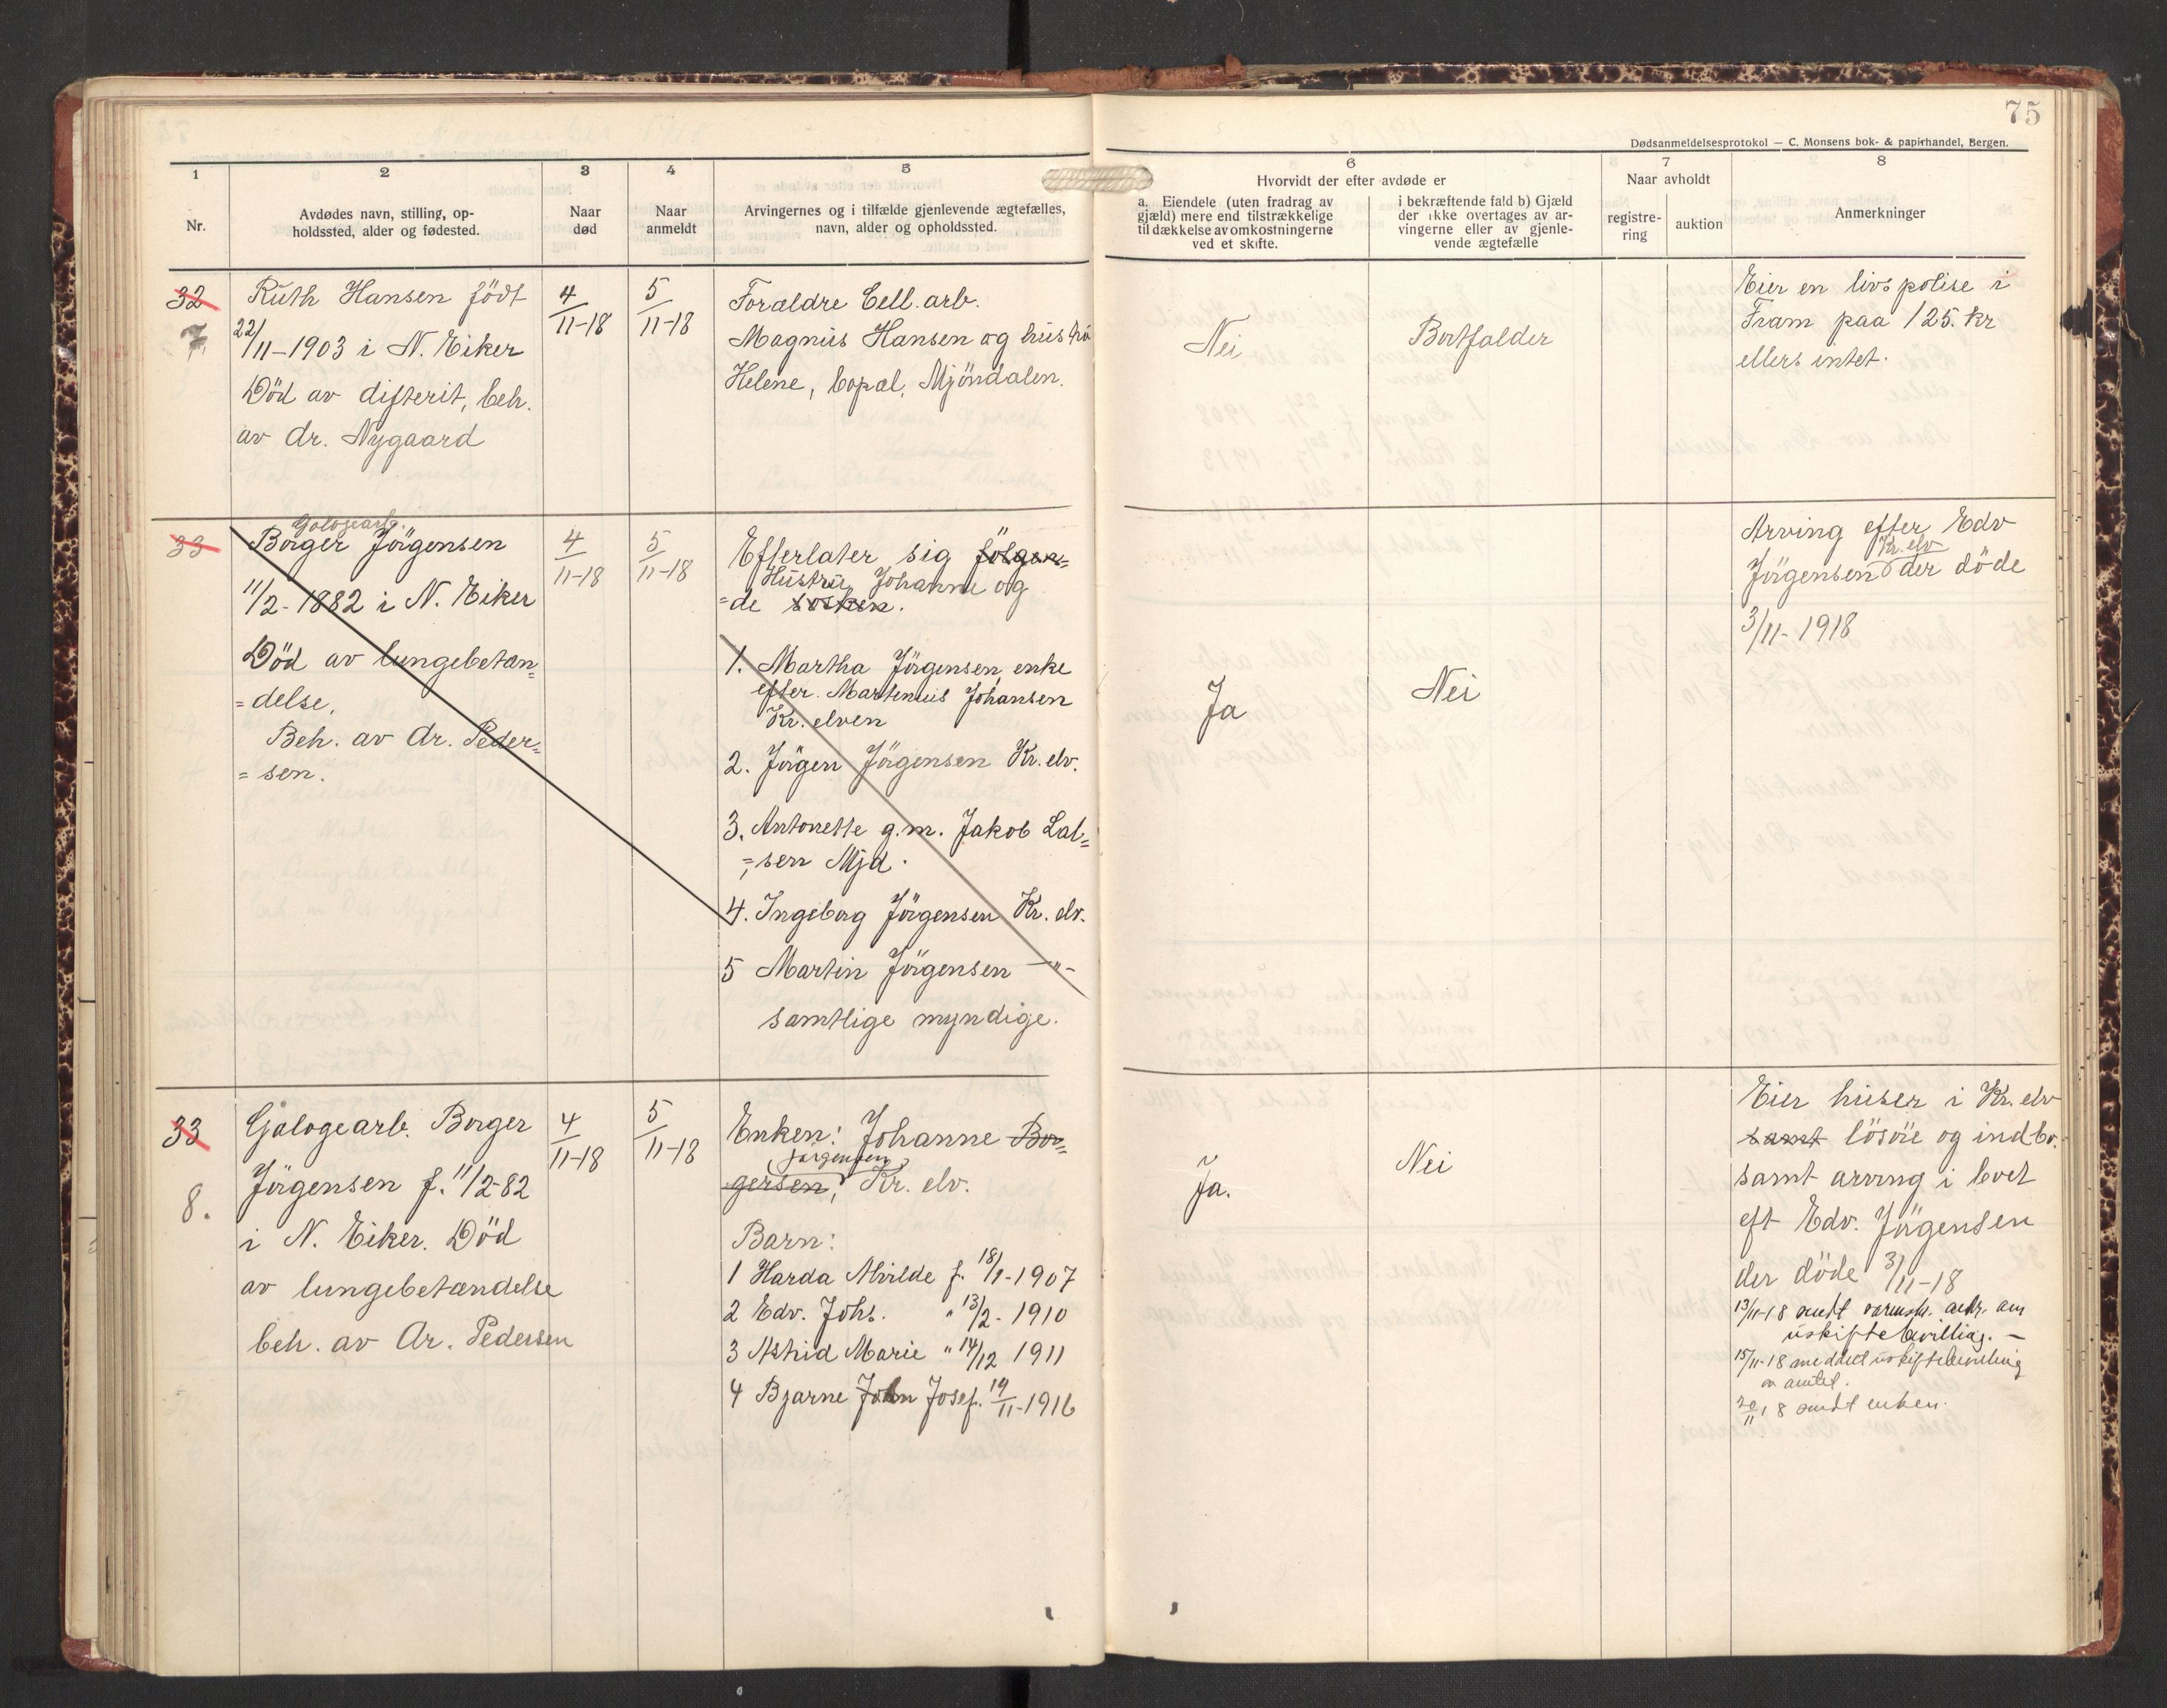 75
Dødsanmeldelsesprotokol — C. Monsens bok- & papirhandel, Bergen.
1
Nr.
2
Avdødes navn, stilling, op-
holdssted, alder og fødested.
3
Naar
død
4
Naar
anmeldt
5
Arvingernes og i tilfælde gjenlevende ægtefælles,
navn, alder og opholdssted.
6
Hvorvidt der efter avdøde er
a. Eiendele (uten fradrag av
gjæld) mere end tilstrækkelige
til dækkelse av omkostningerne
ved et skifte.
i bekræftende fald b) Gjæld
der ikke overtages av ar-
vingerne eller av gjenle-
vende ægtefælle
7
Naar avholdt
registre-
ring
auktion
8
Anmerkninger
32
7
Ruth Hansen födt
22/11-1903 i N. Eiker
Död av difterit, beh.
av dr. Nygaard
4/11-18
5/11-18
Foraldre Cell. arb.
Magnus Hansen og hustru
Helene, Copal, Mjöndalen.
Nei
Bortfalder
Eier en livspolise i
Fram paa 125. kr
ellers intet.
33
Galogearb.
Borger Jörgensen
11/2-1882 i N. Eiker
Död av lungebetan=
=delse.
Beh. av dr. Peder=
=sen.
4/11-18
5/11-18
Efterlater sig fölgen=
Hustru Johanne og
=de sosken.
1. Martha Jörgensen, enke
efter. Martinius Johansen
Kr. elven
2. Jörgen Jörgensen Kr. elv.
3. Antonette g.m. Jakob Lal=
=sen Mjd.
4. Ingeborg Jörgensen Kr. elv.
5 Martin Jörgensen —"—
samtlige myndige.
Ja
Nei
Arving efter Edv
Kr. elv
Jörgensen der döde
3/11-1918
33
8.
Galogearb. Borger
Jörgensen f. 11/2-82
i N. Eiker. Död
av lungebetandelse
beh. av Dr. Pedersen
4/11-18
5/11-18
Enken: Johanne Bor=
Jörgensen
gersen, Kr. elv.
Barn:
1 Harda Mirlde f. 18/1-1907
2 Edv. Johs. " 13/2-1910
3 Astrid Marie " 14/12 1911
4 Bjarne John Josef. 19/11-1916
Ja.
Nei
Eier huser i Kr. elv
samt lösöre og indbo.
samt arving i boet
eft Edv. Jörgensen
der döde 3/11-18
13/11-18 sendt andr. om
uskiftebevilling. —
15/11-18 meddelt uskiftebevilling
av amtet.
20/11 18 sendt enken.